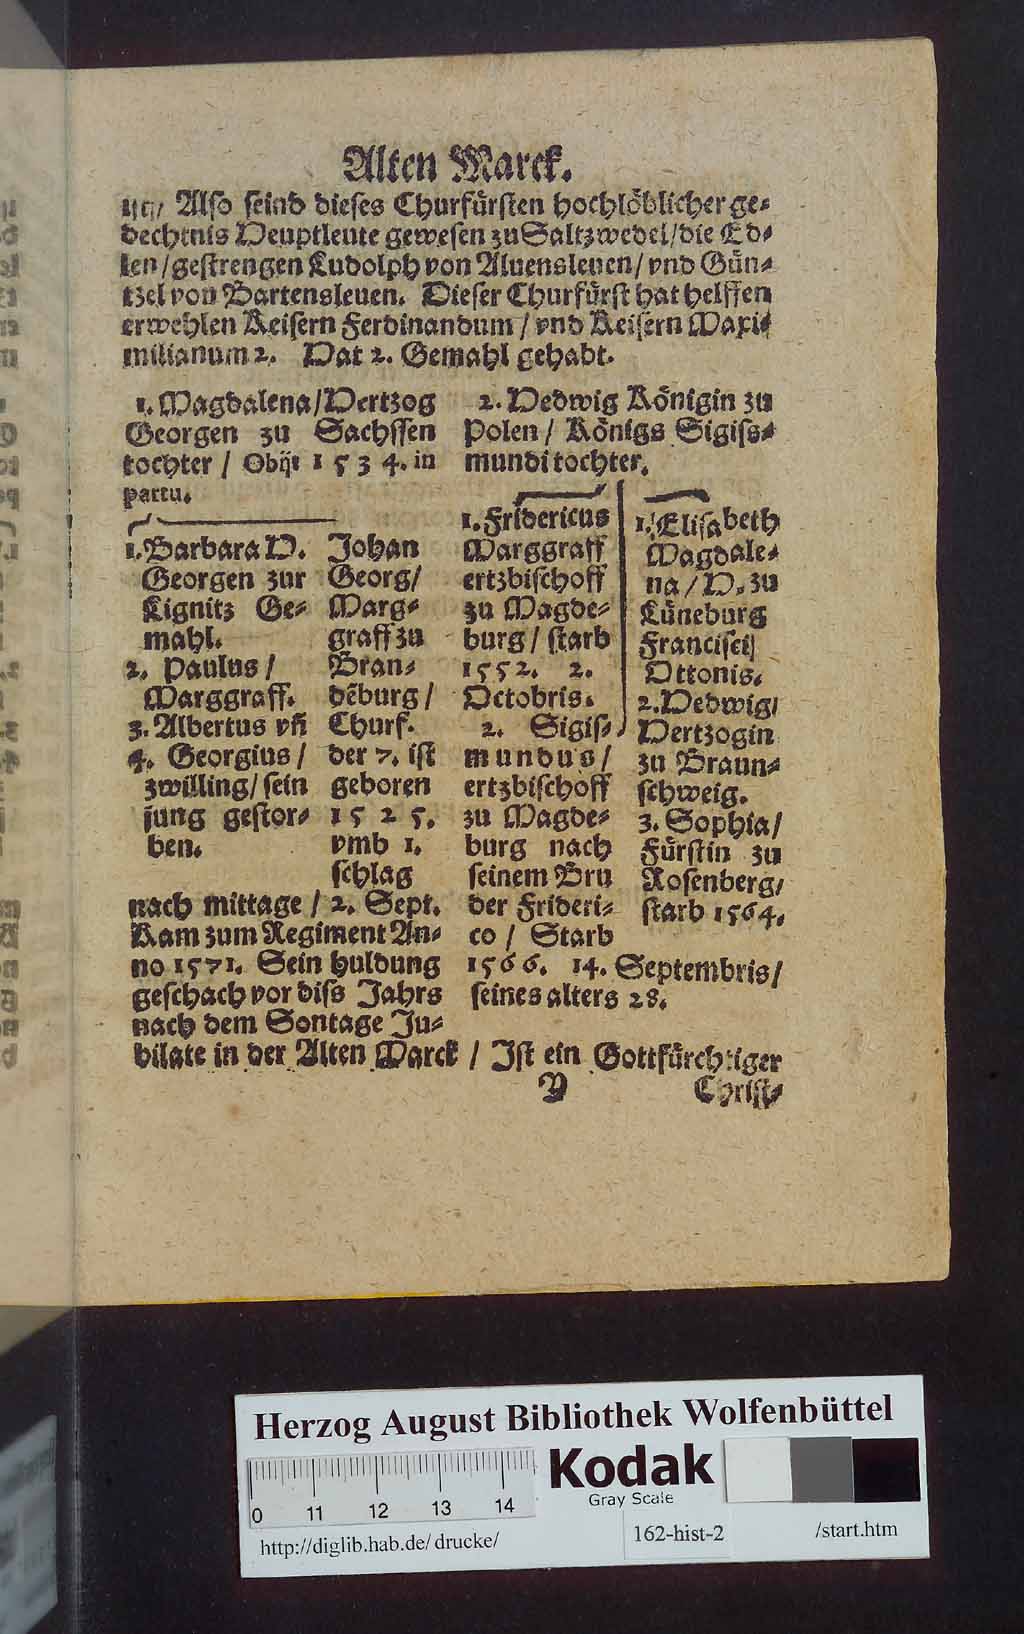 Alten Marck.
Also seind dieses Churfürsten hochlöblicher ge-
dechtnis Heuptleute gewesen zu Saltzwedel/die Ed-
len/gestrengen Ludolph von Aluensleuen/vnd Gün-
tzel von Bartensleuen. Dieser Churfürst hat helffen
erwehlen Keisern Ferdinandum/vnd Keisern Maxi-
milianum 2. Hat 2. Gemahl gehabt.
1. Magdalena/Hertzog
Georgen zu Sachssen
tochter/Obijt 1534. in
partu.
2. Hedwig Königin zu
Polen/Königs Sigiss-
mundi tochter.
1. Barbara H.
Georgen zur
Lignitz Ge-
mahl.
2. Paulus/
Marggraff.
3. Albertus vñ
4. Georgius/
zwilling/sein
jung gestor-
ben.
Johan
Georg/
Marg-
graff zu
Bran-
dēburg/
Churf.
der 7. ist
geboren
1525.
vmb 1.
schlag
nach mittage/2. Sept.
Kam zum Regiment An-
no 1571. Sein huldung
geschach vor diss Jahrs
nach dem Sontage Ju-
1. Fridericus
Marggraff
ertzbischoff
zu Magde-
burg/starb
1552. 2.
Octobris.
2. Sigis-
mundus/
ertzbischoff
zu Magde-
burg nach
seinem Bru
der Frideri-
co/Starb
1566. 14. Septembris/
seines alters 28.
1. Elisabeth
Magdale-
na/H. zu
Lüneburg
Francisci
Ottonis.
2. Hedwig/
Hertzogin
zu Braun-
schweig.
3. Sophia/
Fürstin zu
Rosenberg/
starb 1564.
bilate in der Alten Marck/Ist ein Gottfürchtiger
Y Christ-
Herzog August Bibliothek Wolfenbüttel
Kodak
Gray Scale
0 11 12 13 14
http://diglib.hab.de/drucke/ 162-hist-2 /start.htm